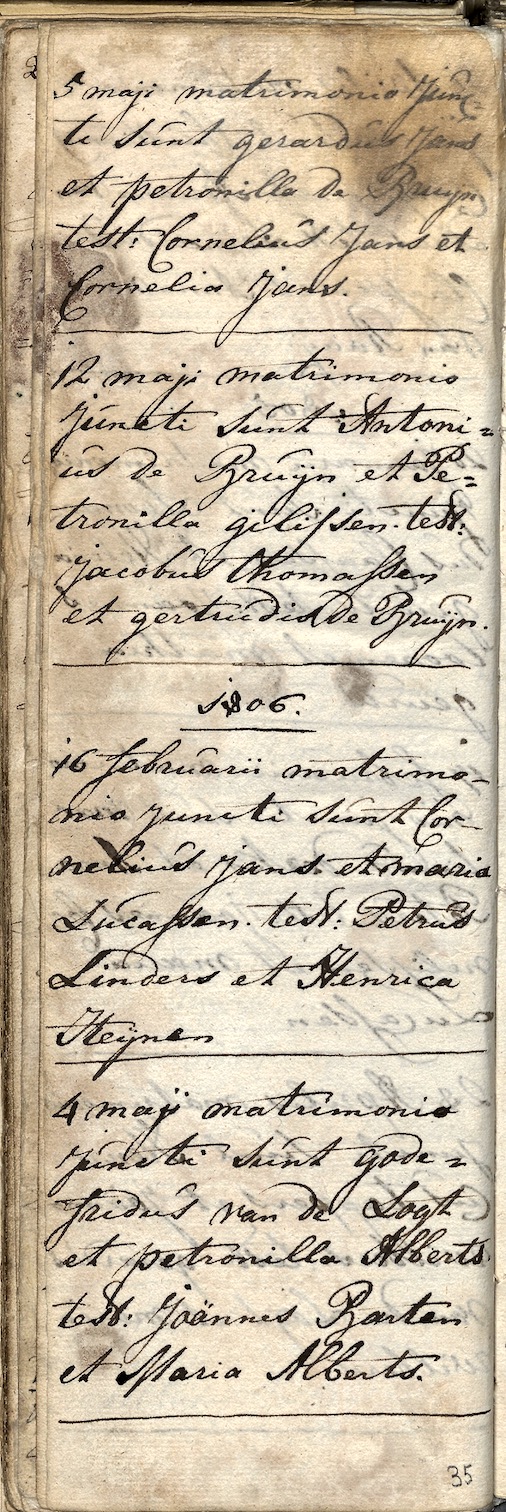 5 maji matrimonio Junc-
ti sunt gerardus Jans
et petronilla de Bruyn
test: Cornelius Jans et
Cornelia Jans.
12 maji matrimonio
Juncti sunt Antoni=
us de Bruÿn et Pe=
tronilla gilissen. test:
Jacobus thomassen
et gertrudis de Bruÿn.
1806.
16 februarii matrimo-
nio juncti sunt Cor-
nelius Jans. et maria
Lucassen. test: Petrus
Linders et Henrica
Heijnen
4 maji matrimonio
juncti sunt gode=
fridus van de Logt
et petronilla Alberts.
test: Joännes Barten
et Maria Alberts.
35